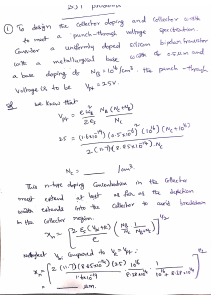 ① To design the collector doping and collector width
to meet a punch-through voltage specification.
Consider a uniformly doped silicon bipolar transistor
with a metallurgical base width of 0.5 μm and
a base doping of N_B = 10^16/cm³. The punch-through
voltage is to be V_pt = 25V.
We know that
V_pt = e W_B² N_B (N_C + N_B) / 2 ε_s N_C
25 = (1.6×10^-19) (0.5×10^-4)² (10^16) (N_C + 10^16) / 2 (11.7) (8.85×10^-14) N_C
N_C = /cm³.
This n-type doping concentration in the collector
must extend at least as far as the depletion
width extends into the collector to avoid breakdown
in the collector region.
x_n = [ 2 ε_s (V_bi + V_R) / e ( N_B / N_C 1 / N_B + N_C ) ]^1/2
neglect V_bi compared to V_R = V_pt
= μm.